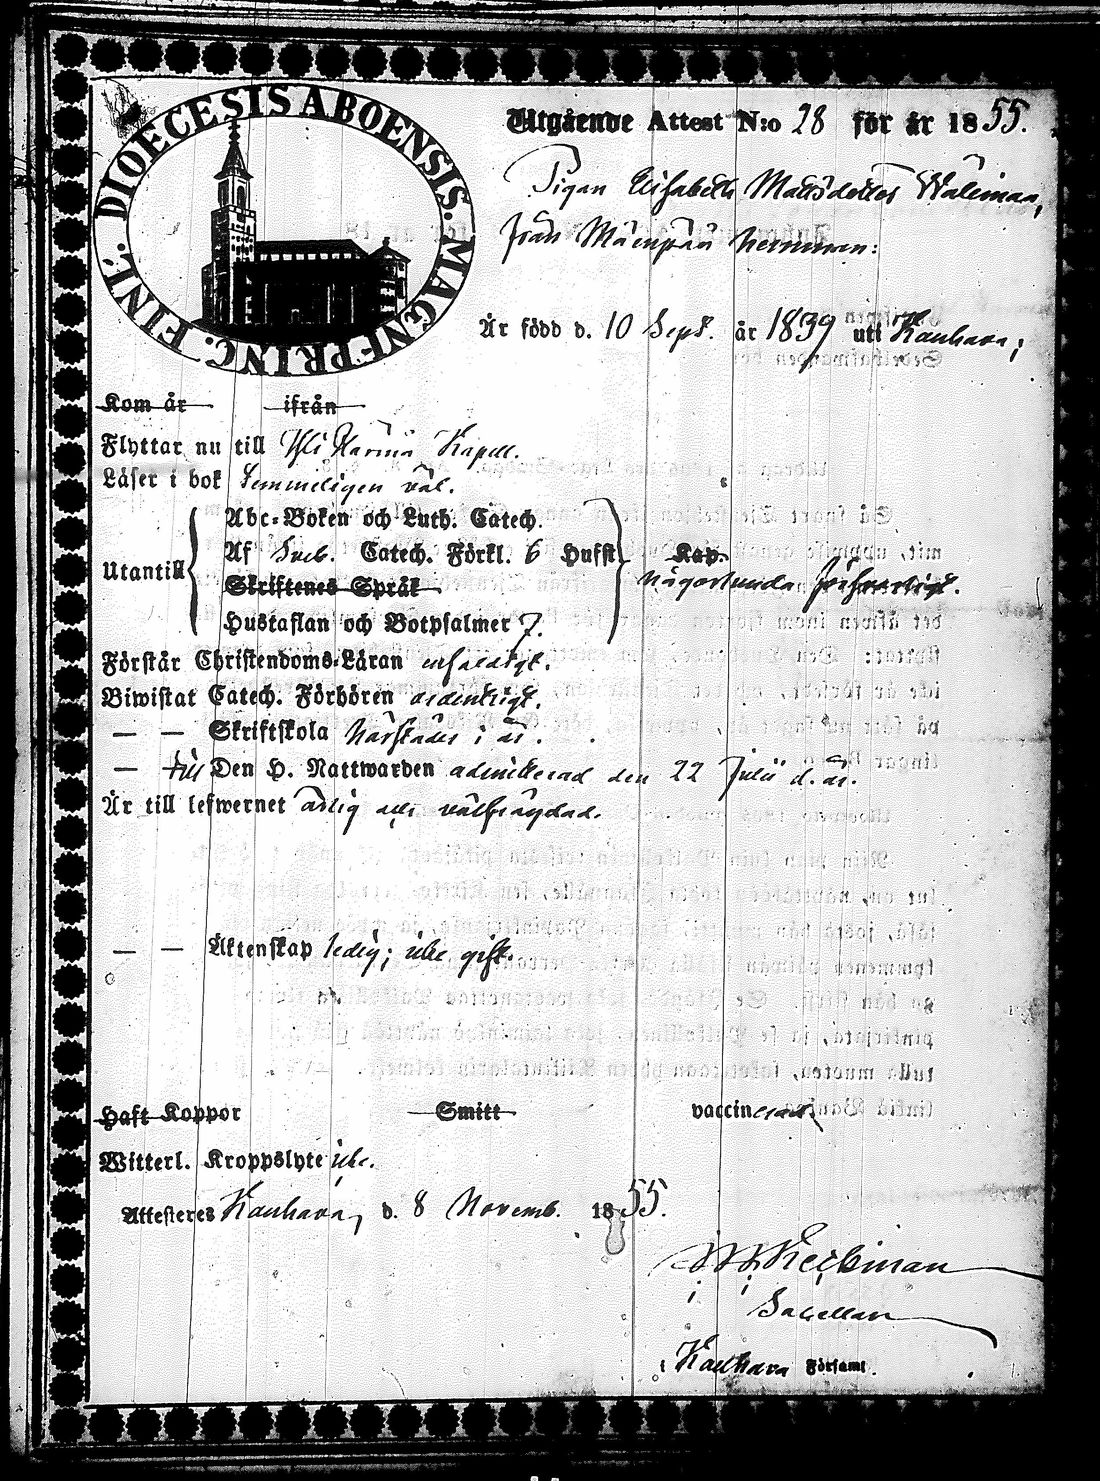 DIOECESIS ABOENSIS. MAGNI PRINC. FINL.
Utgående Attest N:o 28 för år 1855.
Pigan Elisabeth Mattsdotter Wälimaa,
från Mäenpää hemman:
Är född d. 10 Sept. år 1839 uti Kauhava;
Kom år ifrån
Flyttar nu till Ylihärmä Kapell.
Läser i bok temmeligen väl.
Abc-Boken och Luth. Catech.
Af Sveb. Catech. Förkl. 6 Hufst. Kap.
Utantill någorlunda försvarligt.
Skriftenes Språk
Hustaflan och Botpsalmer 7.
Förstår Christendoms-Läran enfaldigt.
Biwistat Catech. Förhören ordentligt.
— — Skriftskola härstädes i år.
— till Den H. Nattwarden admitterad den 22 Julii d. år.
Är till lefwernet ärlig och välfrägdad.
— — Äktenskap ledig; icke gift.
Haft Koppor Smitt vaccinerad
Witterl. Kroppslyte icke.
Attesteres Kauhava, d. 8 Novemb. 1855.
Sacellan
i Kauhava Församl.